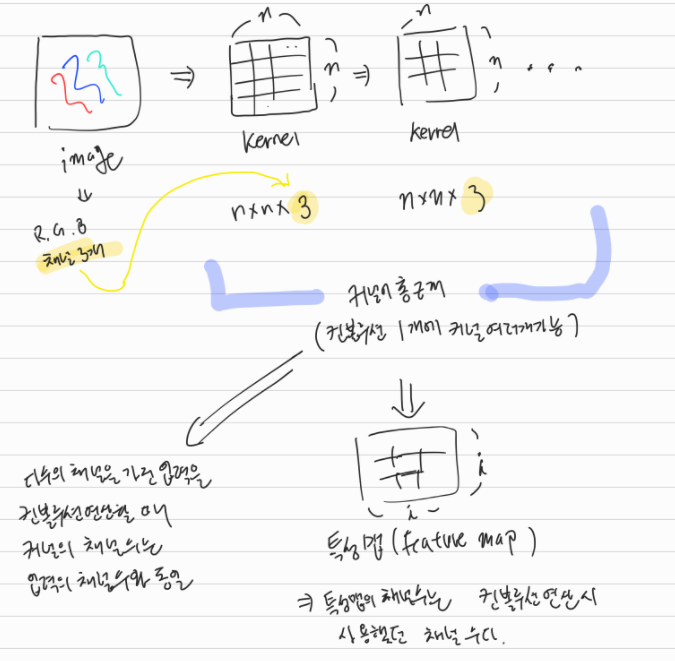 n
n
n
n
kernel
kernel
image
R.G.B
채널 3개
n×n×3
n×n×3
커널이 총
(컨볼루션 1개에 커널 여러개 가능)
다수의 채널을 가진 입력을
컨볼루션 연산할 때
커널의 채널의 는
입력의 채널수와 동일
i
i
특성맵 (feature map)
⇒ 특성맵의 채널수는 컨볼루션 연산시
사용했던 채널 수다.